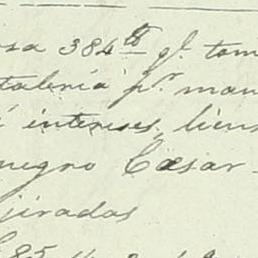 osa 384 to gl. tom
talenia pr. man
i intereses, liens
negro Cæsar
jurados
85